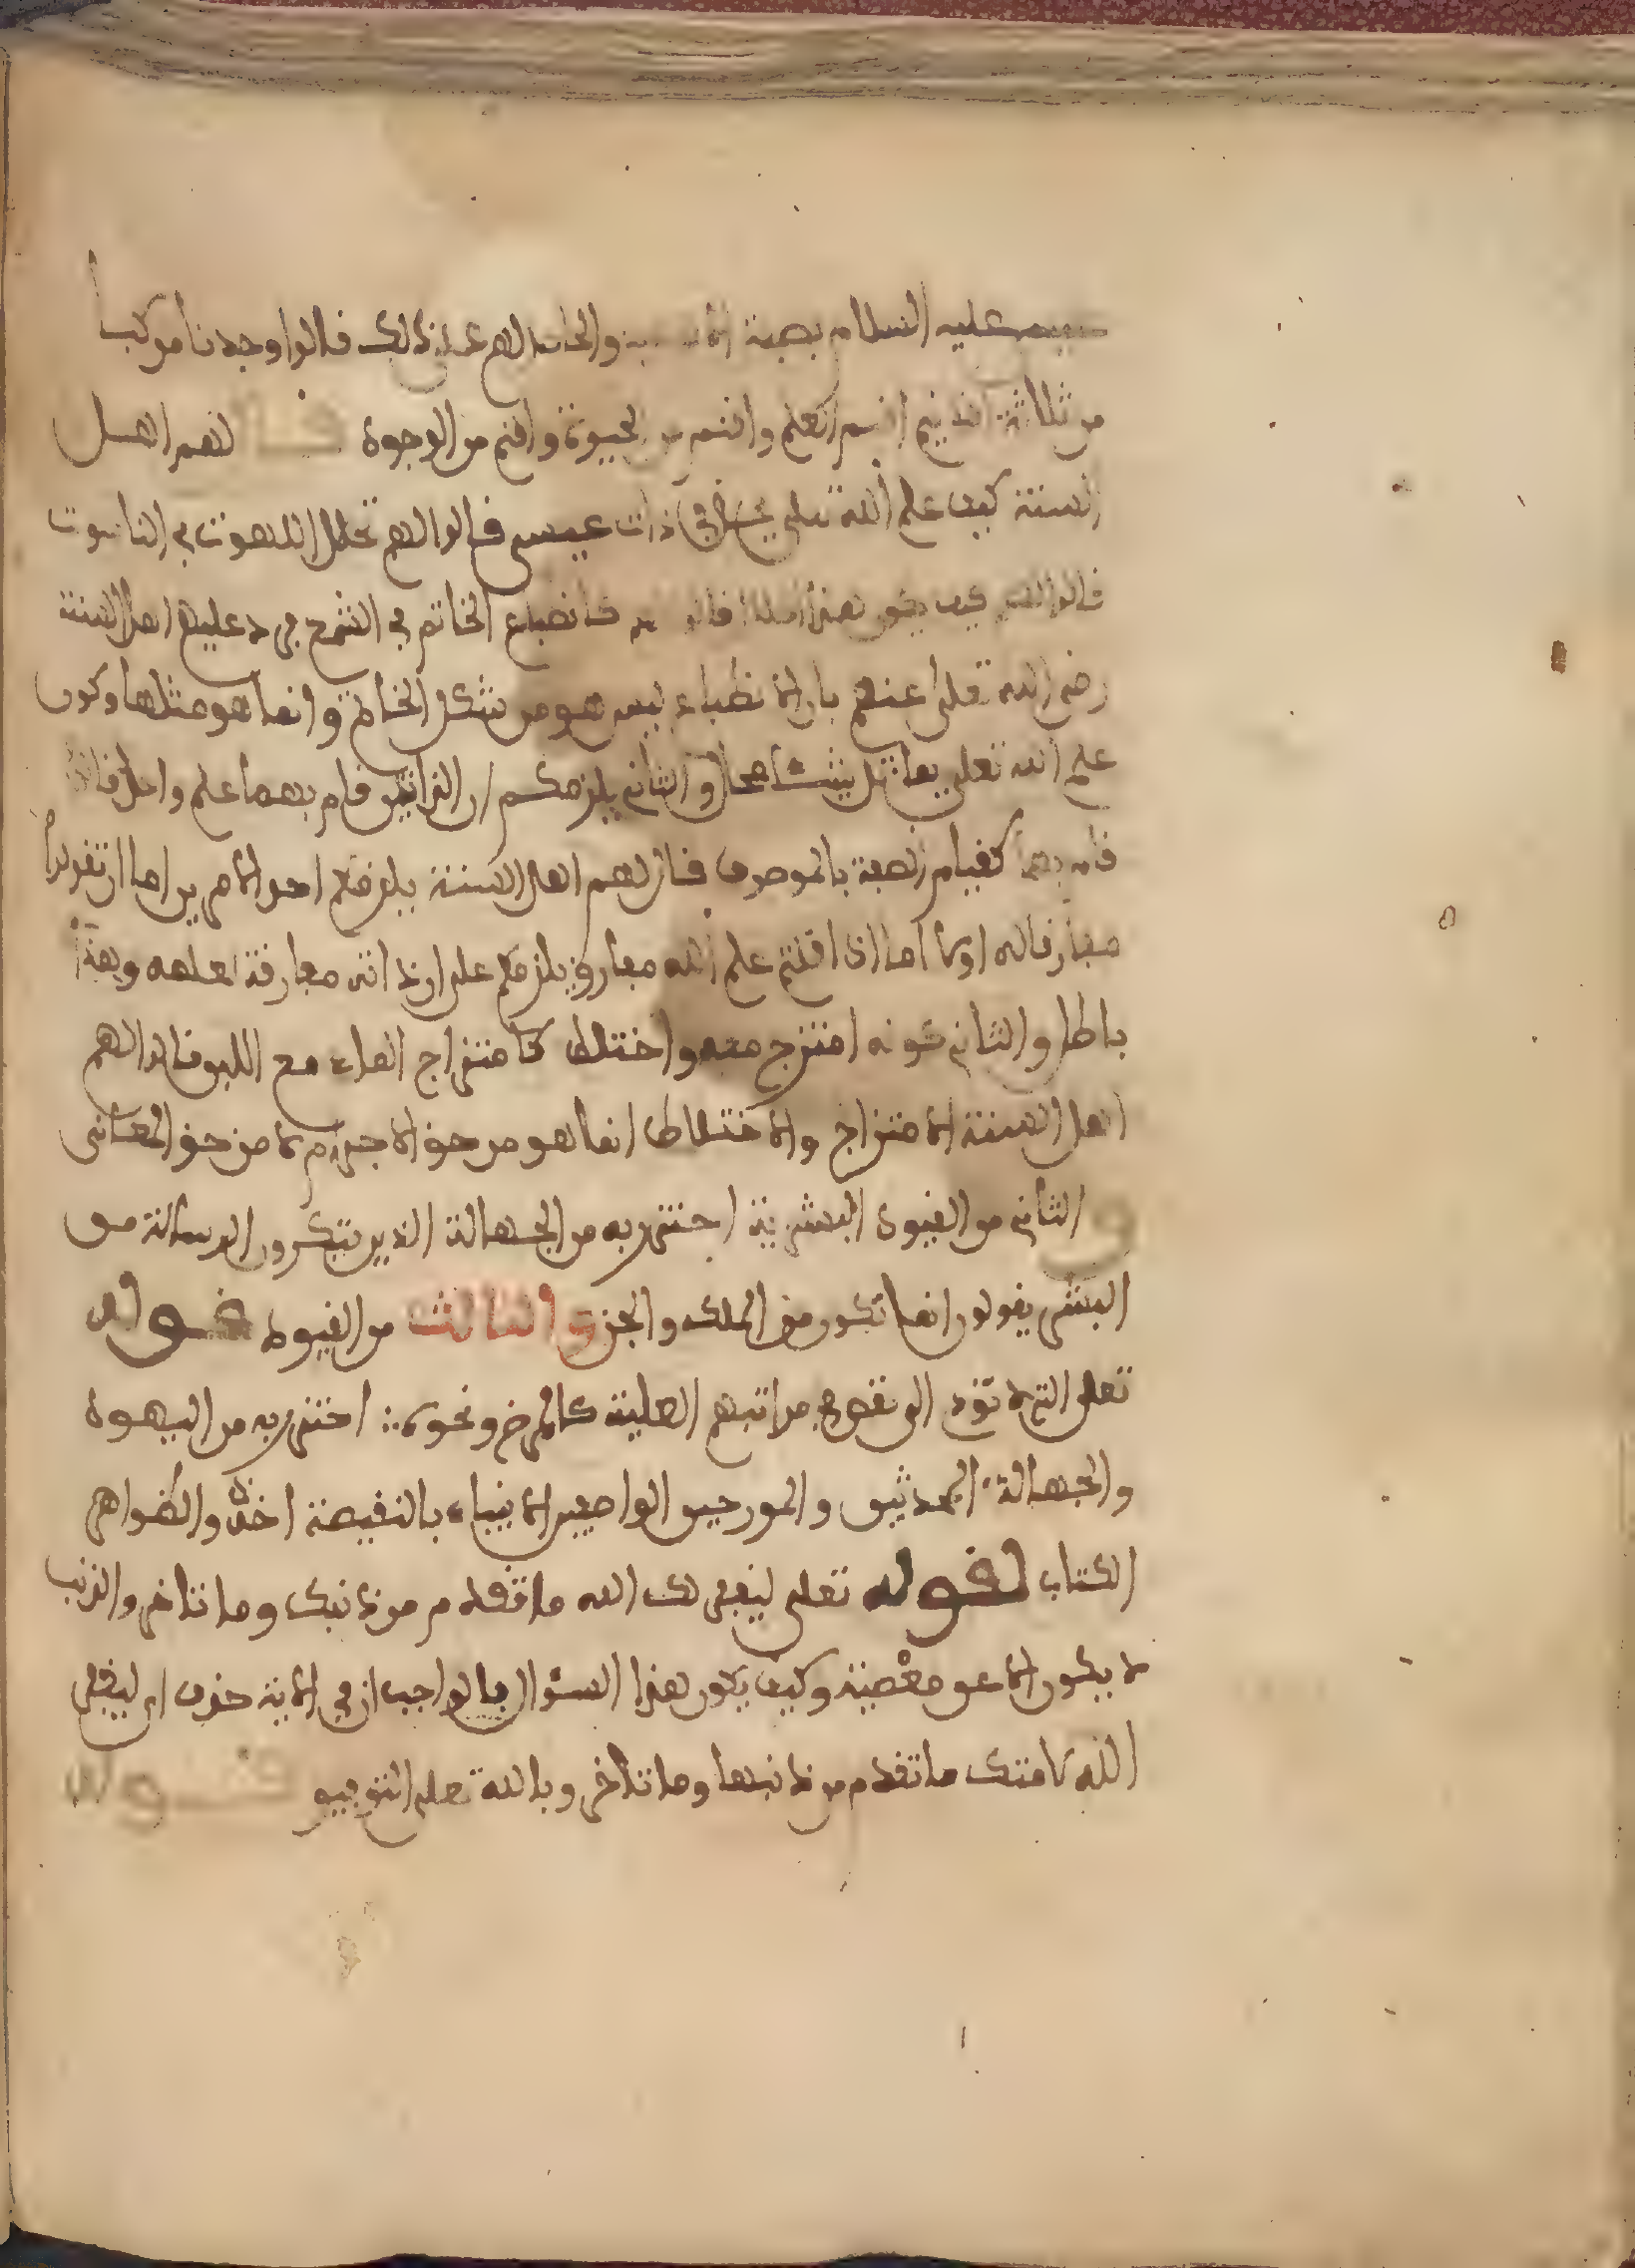 عليه السلام بصفة والحامل لهم على ذالك فالوا وجدنا مركبا
من ثلاثة افانيم افنم العلم وافنم من الحيوة وافنم من الوجود فال لهم اهل
السنة كيف علم الله تعلى في ذات عيسى فالوا لهم تحلل اللهوت في الناسوت
فالوا لهم كيف يكون هذا فالوا كانطباع الخاتم في الشمع فرد عليهم اهل السنة
رضي الله تعلى عنهم بان الانطباع ليس هو من شكل الخاتم وانما هو مثلها وكون
علم الله تعلى يماثل شيئا محال والثاني يلزمكم ان الذاتين فام بهما علم واحد فان
فام بهما كفيام الصفة بالموصوف فال لهم اهل السنة يلزمكم احد الامرين اما ان تفولوا
مفارفا له اولا اما اذا فلتم علم الله مفارق يلزمكم على ان ذاته مفارفة لعلمه وهذا
باطل والثاني كونه امتزج معه واختلط كامتزاج الماء مع اللبن فالوا لهم
اهل السنة الامتزاج والاختلاط انما هو من حق الاجرام لا من حق المعاني
والثاني من الفيود البشرية احترز به من الجهالة الذين ينكرون الرسالة من
البشر يفولون انما تكون من الملك والجن والثالث من الفيود فوله
تعلى التي لا تؤد الى نفص في مراتبهم العلية كالمرض ونحوه احترز به من اليهود
والجهالة المحدثين والمورخين الواصفين الانبياء بالنفيصة اخذوا لظواهر
الكتاب لفوله تعلى ليغفر لك الله ما تفدم من ذنبك وما تاخر والذنب
لا يكون الا عن معصية وكيف يكون هذا السؤال بالواجب ان في الاية حذف اي ليغفر
الله لامتك ما تفدم من ذنبها وما تاخر وبالله تعلى التوفيق فوله